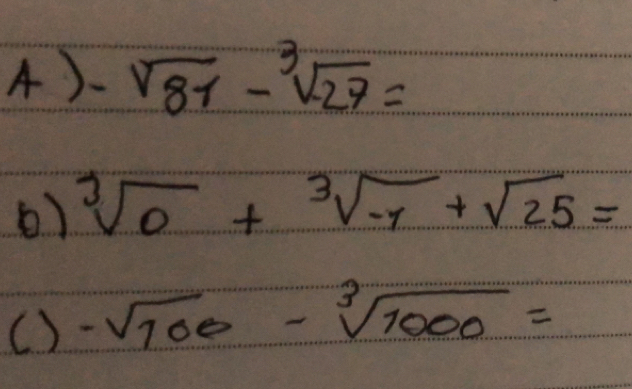 A) - √81 - ³√-27 =
b) ³√0 + ³√-1 + √25 =
C) - √100 - ³√1000 =